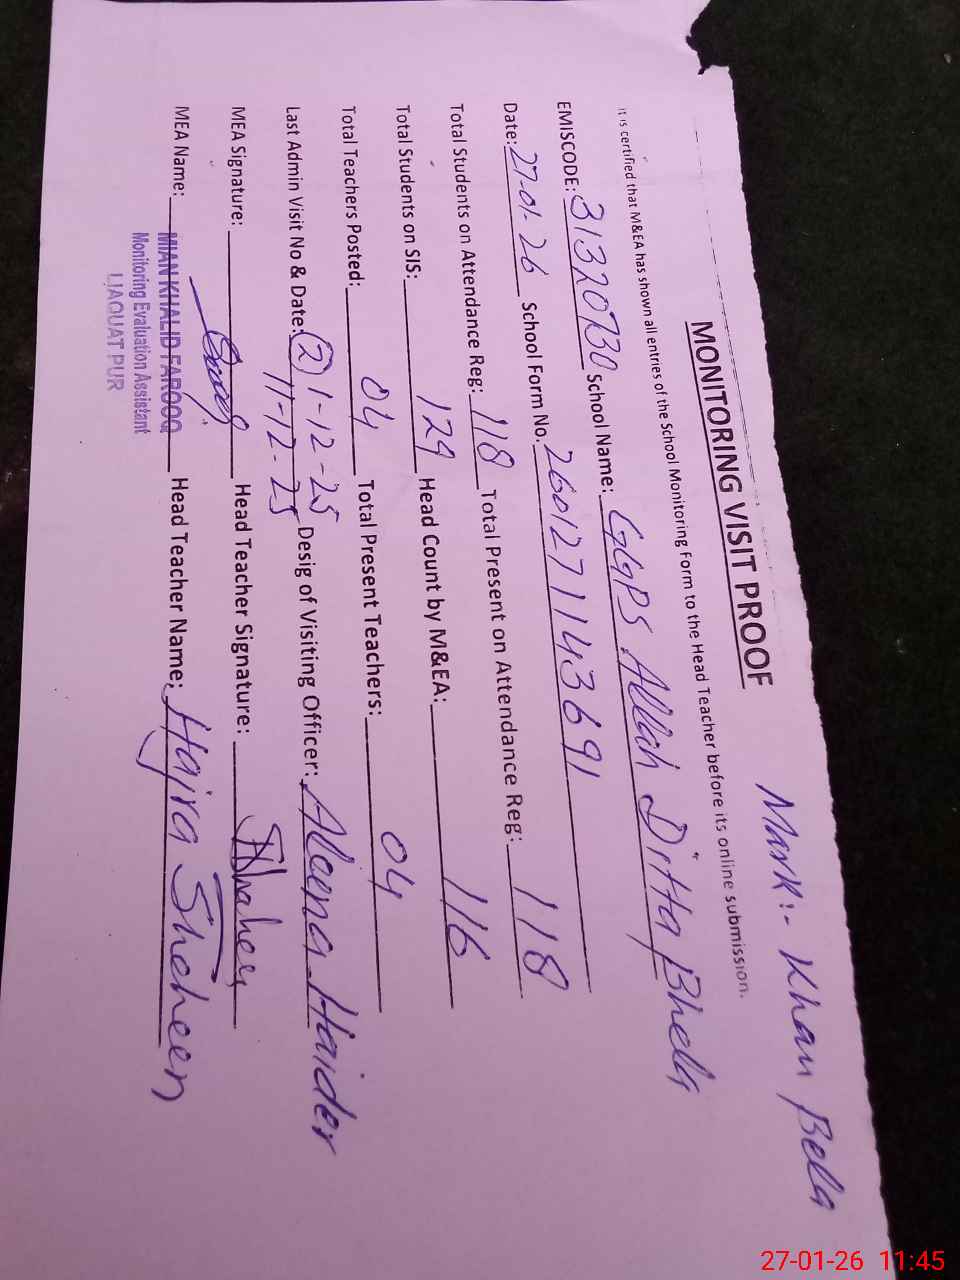 Mark:- Khan Bela
MONITORING VISIT PROOF
It is certified that M&EA has shown all entries of the School Monitoring Form to the Head Teacher before its online submission.
EMISCODE: 31320730 School Name: GGPS Allah Ditta Bhela
Date: 27-01-26 School Form No. 2601271143691
Total Students on Attendance Reg: 118 Total Present on Attendance Reg: 118
Total Students on SIS: 129 Head Count by M&EA: 116
Total Teachers Posted: 04 Total Present Teachers: 04
Last Admin Visit No & Date: (2) 1-12-25 Desig of Visiting Officer: Aleena Haider
11-12-25
MEA Signature: Head Teacher Signature:
MEA Name: MIAN KHALID FAROOQ Head Teacher Name: Hajra Shaheen
Monitoring Evaluation Assistant
LIAQUAT PUR
27-01-26 11:45